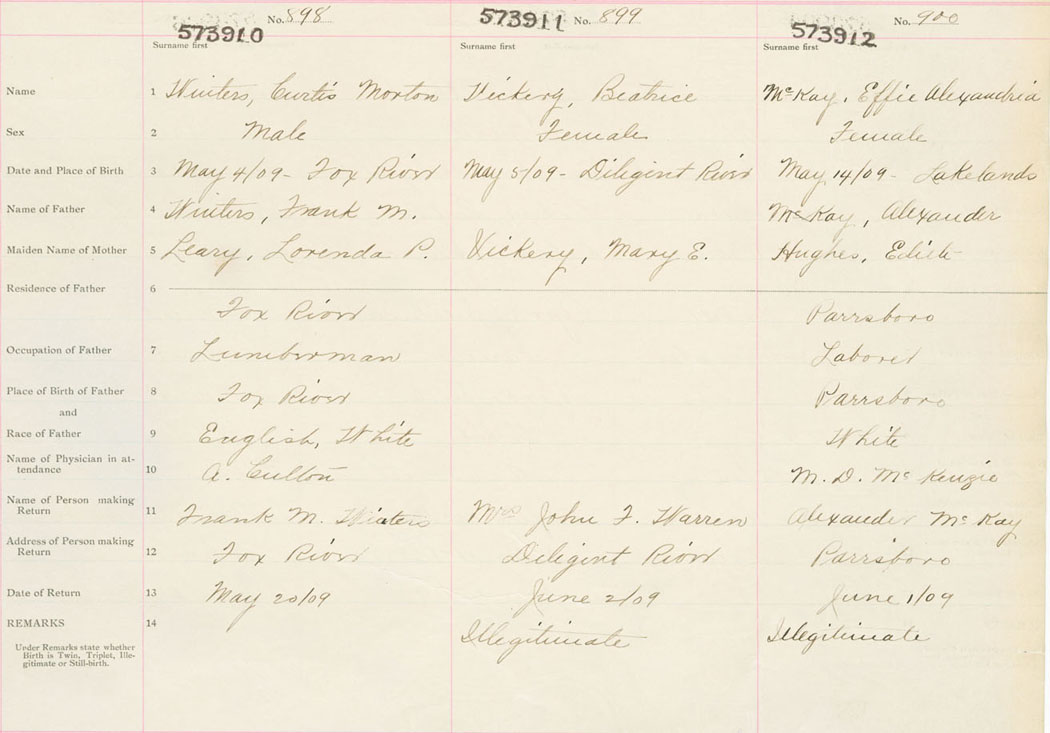 No. 898 No. 899 No. 900
573910 573911 573912
Surname first Surname first Surname first
Name 1 Winters, Curtis Morton Vickery, Beatrice McKay, Effie Alexandria
Sex 2 Male Female Female
Date and Place of Birth 3 May 4/09 - Fox River May 5/09 - Diligent River May 14/09 - Lakelands
Name of Father 4 Winters, Frank M. McKay, Alexander
Maiden Name of Mother 5 Leary, Lorenda P. Vickery, Mary E. Hughes, Edith
Residence of Father 6
Fox River Parrsboro
Occupation of Father 7 Lumberman Laborer
Place of Birth of Father 8 Fox River Parrsboro
and
Race of Father 9 English, White White
Name of Physician in at-
tendance 10 A. Culton M. D. McKenzie
Name of Person making
Return 11 Frank M. Winters Mrs John F. Warren Alexander McKay
Address of Person making
Return 12 Fox River Diligent River Parrsboro
Date of Return 13 May 20/09 June 2/09 June 1/09
REMARKS 14 Illegitimate Illegitimate
Under Remarks state whether
Birth is Twin, Triplet, Ille-
gitimate or Still-birth.